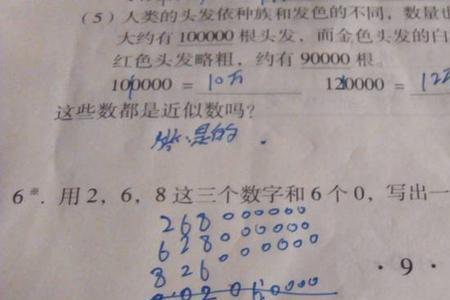 (5) 人类的头发依种族和发色的不同，数量也
大约有 100000 根头发，而金色头发的白
红色头发略粗，约有 90000 根。
100000 = 10万 120000 = 12万
这些数都是近似数吗？
是的.
6※. 用 2，6，8 这三个数字和 6 个 0，写出一
268000000
628000000
826000
·9·